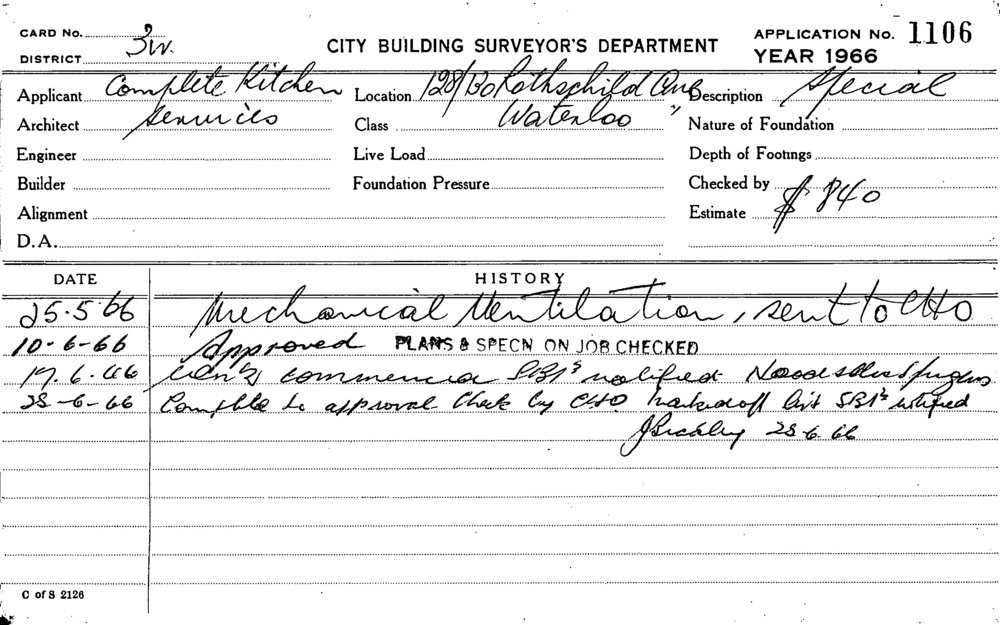 CARD No.
DISTRICT 3W.
CITY BUILDING SURVEYOR'S DEPARTMENT
APPLICATION No. 1106
YEAR 1966
Applicant Complete Kitchen
Location 128/130 Rothschild Ave
Description Special
Architect Services
Class Waterloo
Nature of Foundation
Engineer
Live Load
Depth of Footings
Builder
Foundation Pressure
Checked by
Alignment
Estimate $ 840
D.A.
DATE
HISTORY
25.5.66 Mechanical Ventilation, sent to CHO
10-6-66 Approved PLANS & SPECN ON JOB CHECKED
17.6.66 commenced notified
28-6-66 to approval Check by CHO marked off list notified
28 6 66
C of S 2126